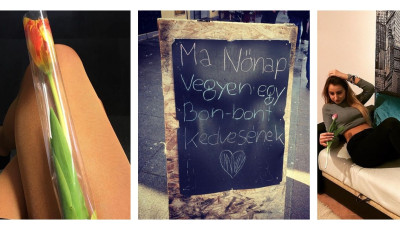 Ma Nőnap
Vegyen egy
Bon-bont
Kedvesének